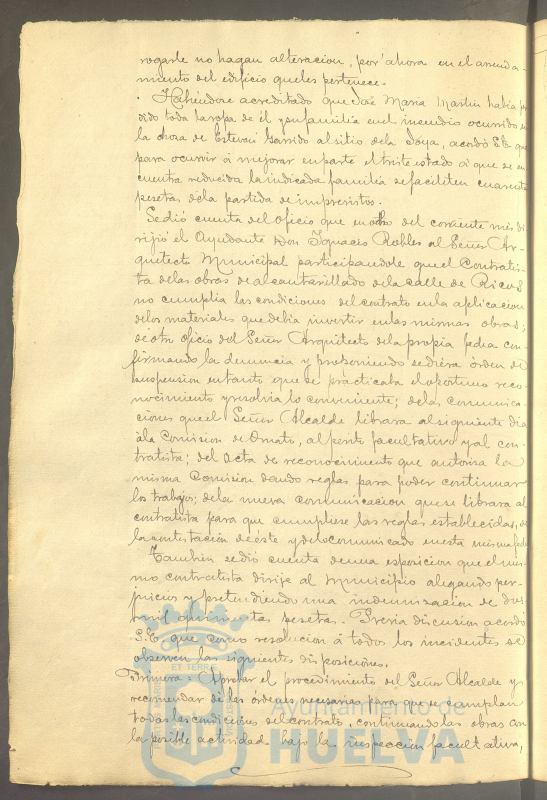 rogarle no hagan alteracion, por ahora en el arrenda-
miento del edificio que les pertenece.
Habiéndose acreditado que José Maria Martin habia per
dido toda la ropa de él y su familia en el incendio ocurrido en
la choza de Estevan Garrido al sitio de la Joya, acordó S.E. que
para ocurrir á mejorar en parte el triste estado á que se en
cuentra reducida la indicada familia se faciliten cuarenta
pesetas de la partida de imprevistos.
Se dió cuenta del oficio que en ocho del corriente mes di
rijió el Ayudante Don Ignacio Robles al Señor Ar-
quitecto Municipal participandole que el Contratis-
ta de las obras de alcantarillado de la calle de Ricos
no cumplia las condiciones del contrato en la aplicacion
de los materiales que debia invertir en las mismas obras;
de otro oficio del Señor Arquitecto de la propia fecha con-
firmando la denuncia y proponiendo se diera órden de
suspension en tanto que se practicaba el oportuno reco-
nocimiento y resolvia lo conveniente; de las comunica-
ciones que el Señor Alcalde librara al siguiente dia
á la Comision de Ornato, al perito facultativo y al con-
tratista; del acta de reconocimiento que autoriza la
misma Comision dando reglas para poder continuar
los trabajos; de la nueva comunicacion que se librara al
contratista para que cumpliese las reglas establecidas, de
la contestacion de este y de lo comunicado en esta misma fecha
Tambien se dió cuenta de una esposicion que el mis-
mo contratista dirije al Municipio alegando per-
juicios y pretendiendo una indemnizacion de dos
mil quinientas pesetas. Previa discusion acordó
S.E. que como resolucion á todos los incidentes se
observen las siguientes disposiciones.
Primera: Aprobar el procedimiento del Señor Alcalde y
recomendar dé las órdenes necesarias para que se cumplan
todas las condiciones del contrato, continuando las obras con
la posible actividad bajo la inspeccion facultativa,
ET TERRÆ
Ayuntamiento de
HUELVA